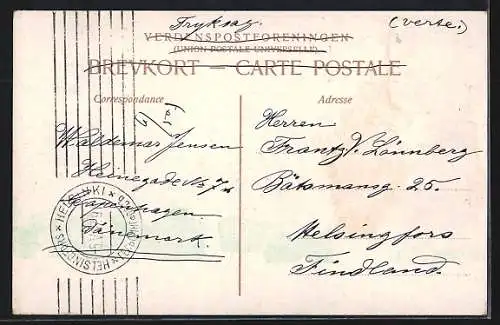 Tryksag.
(verte.)
VERDENSPOSTFORENINGEN
(UNION POSTALE UNIVERSELLE)
BREVKORT — CARTE POSTALE
Correspondance
Adresse
Waldemar Jensen
Heinegade No 7
Kopenhagen.
Dänemark.
Herren
Frantz V. Lönnberg
Båtsmansg. 25.
Helsingfors
Findland.
HELSINKI
HELSINGFORS